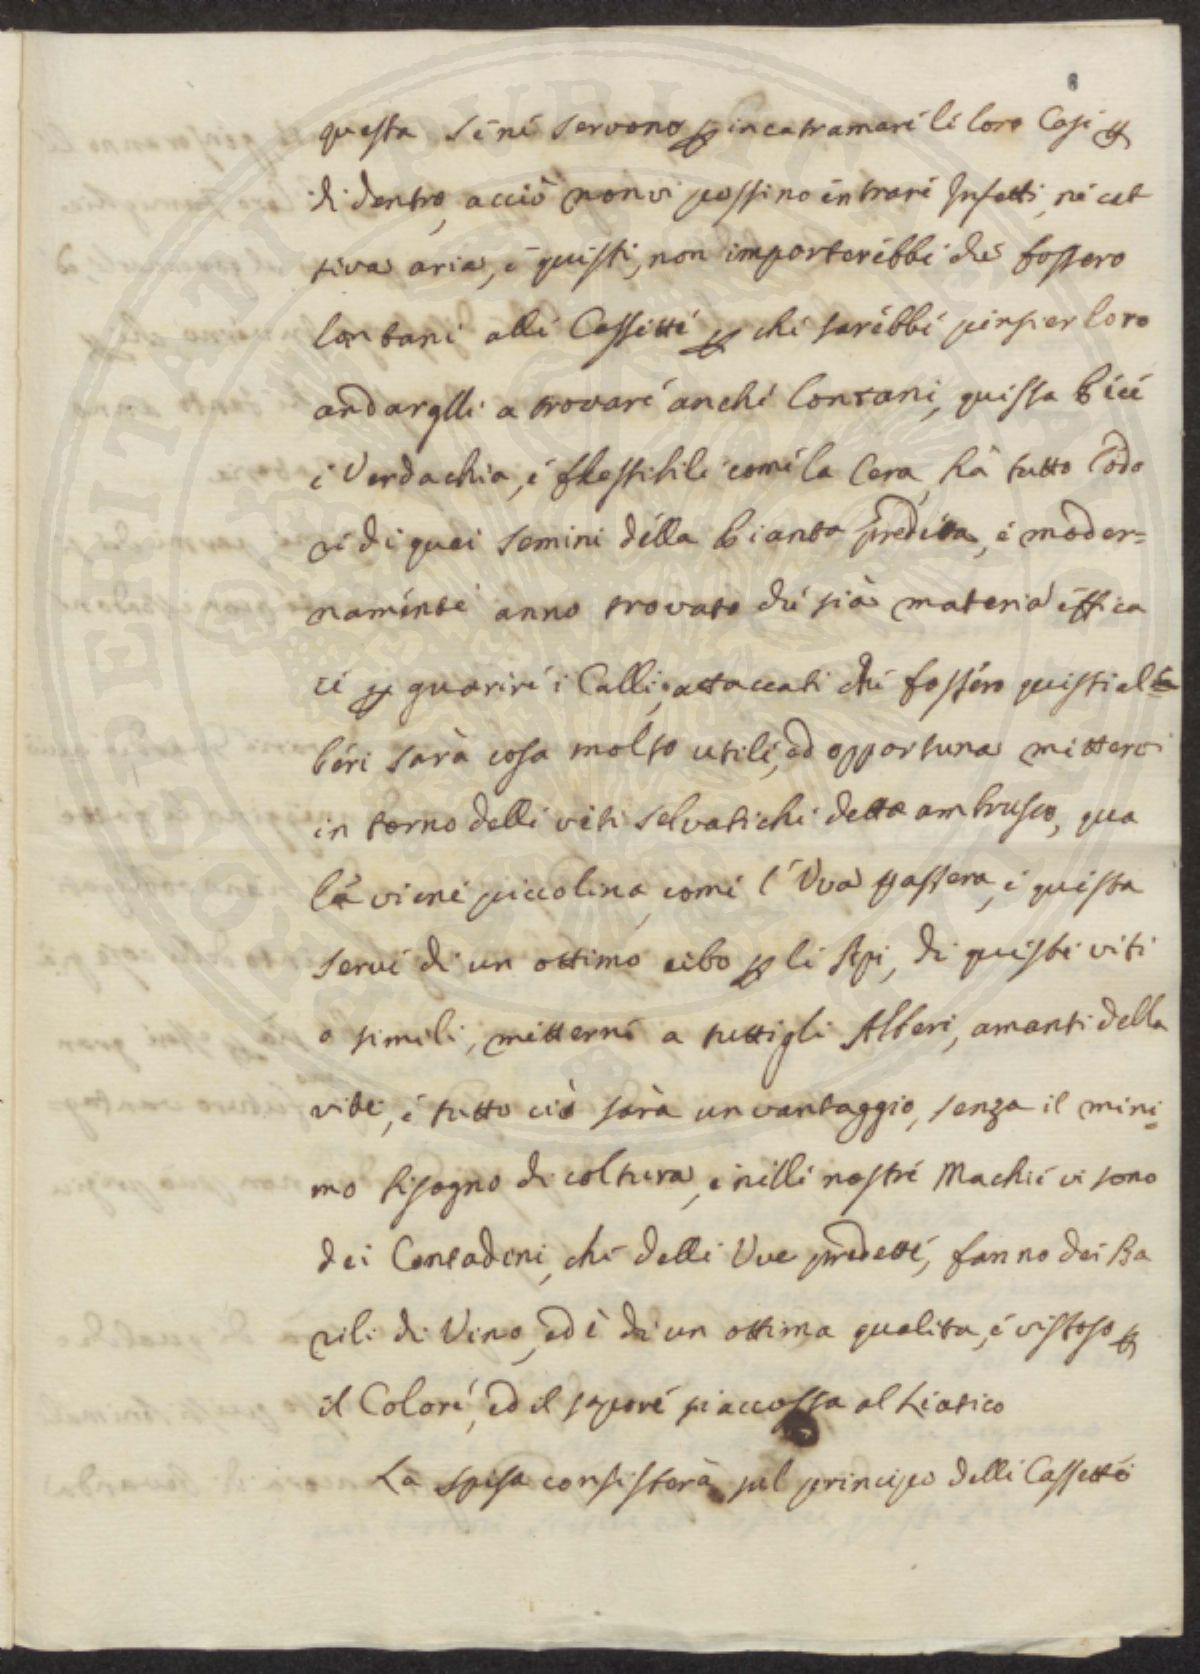 8
questa sene servono p incatramare le loro Case p
di dentro, acciò non vi possino entrare Insetti, ne cat
tiva aria, e questi, non importerebbe che fossero
lontani alle Cassette p che sarebbe pensier loro
andarglli a trovare anche lontani, questa
è Verdachia, è flessibile come la Cera, hà tutto l'odo
re di quei semini della Pianta predetta, e moder=
namente anno trovato che sia materia effica
ce p guarire i Calli; attaccati che fossero questi al
beri sarà cosa molto utile, ed opportuna metterci
intorno delle viti selvatiche dette ambrusco, qua
le viene piccolina, come l'Uva passera, e questa
serve di un ottimo cibo p le Api, di queste viti
o simili, metterne a tutti gli Alberi, amanti della
vite, e tutto ciò sarà un vantaggio, senza il mini=
mo bisogno di coltura, e nelle nostre Machie vi sono
dei Contadini, che delle Uve predette, fanno dei Ba
rili di Vino, ed è di un ottima qualita, e vistoso p
il Colore, ed il sapore si accossta al Liatico
La spesa consisterà sul principo delle Cassette